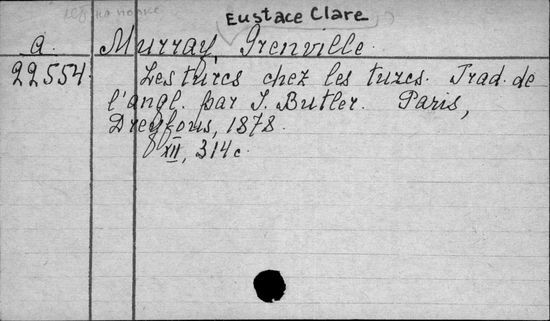 Eustace Clare
a. Murray, Grenville.
22554. Les turcs chez les turcs. Trad. de
l'angl. par J. Butler. Paris,
Dreyfous, 1878.
XII, 314 c.